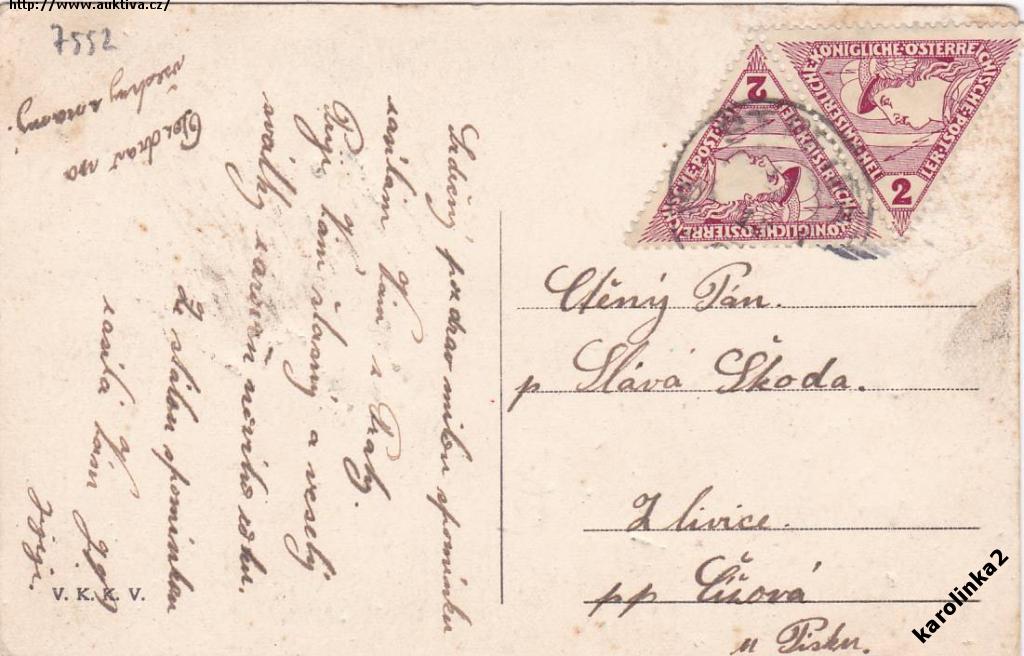 http://www.auktiva.cz/
7552
všechny známý.
Srdečný pozdrav milou spomínku
zasílám Vám z Prahy.
Přeji Vám šťastný a veselý
svátky zároveň nového roku.
Z stálou spomínkou
zasílá Vám
V. K. K. V.
KAISERLICHE KÖNIGLICHE ÖSTERREICHISCHE POST
2
KAISERLICHE KÖNIGLICHE ÖSTERREICHISCHE POST
2
Ctěný Pán.
p Sláva Škoda.
Zlivice.
pp Čížová
u Písku.
karolinka2